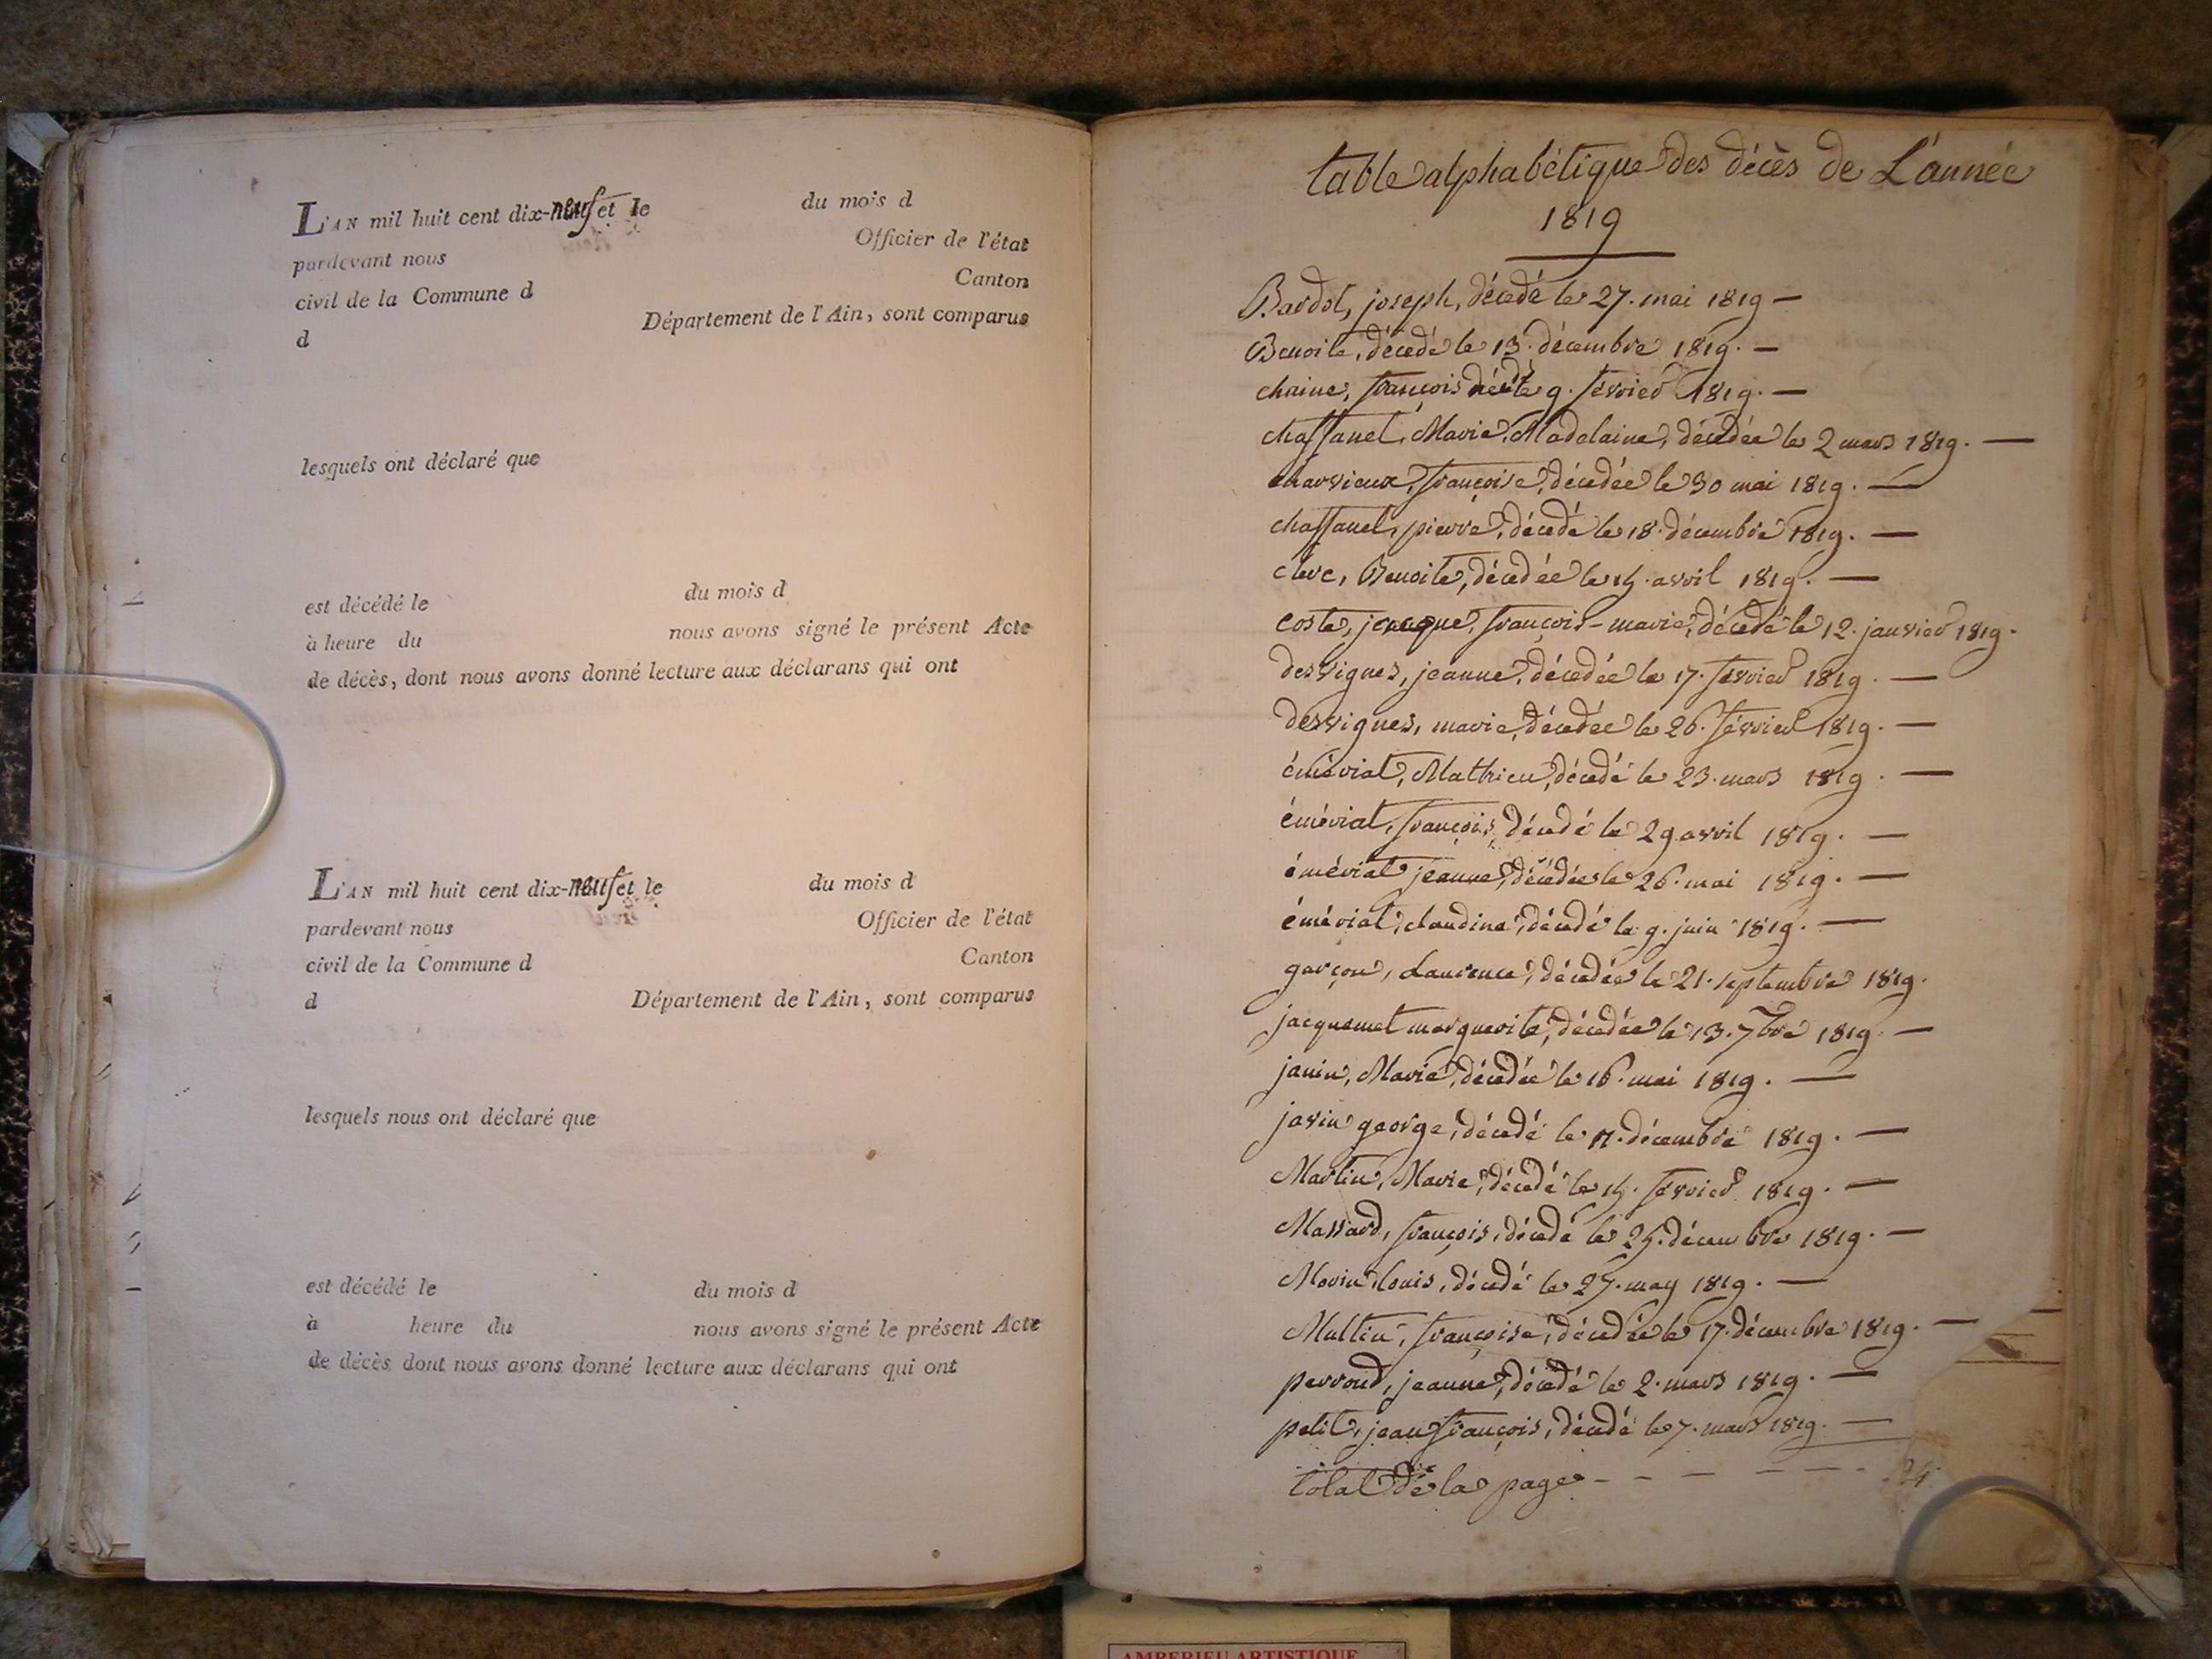 L'AN mil huit cent dix-neuf et le du mois d
pardevant nous Officier de l'état
civil de la Commune d Canton
d Département de l'Ain, sont comparus
lesquels ont déclaré que
est décédé le du mois d
à heure du nous avons signé le présent Acte
de décès, dont nous avons donné lecture aux déclarans qui ont
L'AN mil huit cent dix-neuf et le du mois d
pardevant nous Officier de l'état
civil de la Commune d Canton
d Département de l'Ain, sont comparus
lesquels nous ont déclaré que
est décédé le du mois d
à heure du nous avons signé le présent Acte
de décès dont nous avons donné lecture aux déclarans qui ont
table alphabétique des décès de L'année
1819
Bardot, joseph, décédé le 27. mai 1819 —
Benoite, décédé le 13. décembre 1819. —
chaine, françois décédé le 9. février 1819. —
chaffanel, Marie, Madelaine, décédée le 2 mars 1819. —
charvieux, françoise, décédée le 30 mai 1819. —
chaffanel, pierre, décédé le 18. décembre 1819. —
clerc, Benoite, décédée le 14. avril 1819. —
coste, jacque, françois-marie, décédé le 12. janvier 1819.
desvignes, jeanne, décédée le 17. février 1819. —
desvignes, marie, décédée le 26. février 1819. —
émériat, Mathieu, décédé le 23. mars 1819. —
émériat, françois, décédé le 29 avril 1819. —
émériat jeanne, décédée le 26. mai 1819. —
émériat, claudine, décédé le 9. juin 1819. —
garçon, Laurence, décédée le 21. septembre 1819.
jacquemet marguerite, décédée le 13. 7bre 1819 —
janin, Marie, décédée le 16. mai 1819. —
javin george, décédé le décembre 1819. —
Martin, Marie, décédé le 14. février 1819. —
Massard, françois, décédé le décembre 1819. —
Morin, louis, décédé le 27. may 1819. —
Multin, françoise, décédée le 17. décembre 1819. —
perroud, jeanne, décédé le 2. mars 1819. —
petit, jean françois, décédé le 7. mars 1819. —
total de la page - - - - - - 24
AMBERIEU ARTISTIQUE